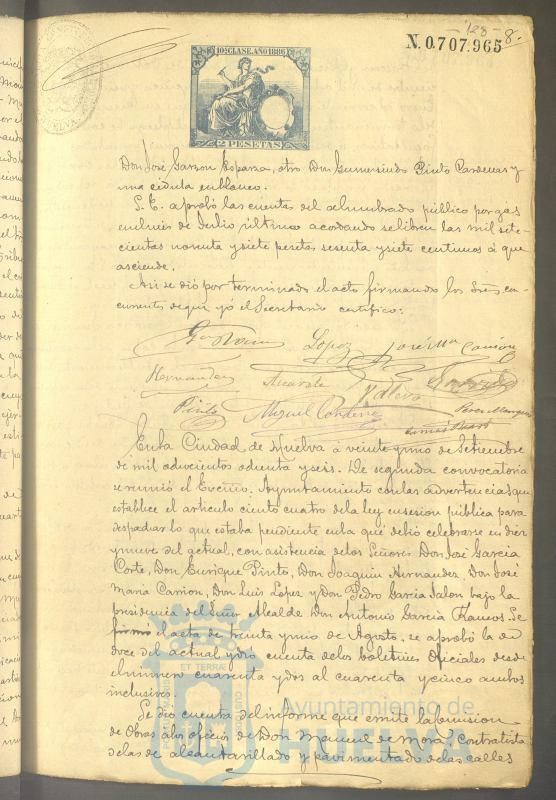 128-8.
N. 0.707.965
10ª CLASE. AÑO 1886
2 PESETAS
HUELVA
Don José Garzon Esparza, otro Don Gumersindo Pinto Cardenas y
una cedula en blanco.
S. E. aprobó las cuentas del alumbrado público por gas
en el mes de Julio último acordando se libren las mil sete-
cientas noventa y siete pesetas sesenta y siete centimos á que
asciende.
Asi se dió por terminado el acto firmando los Sres con-
currentes de que yo el Secretario certifico:
Lopez José Mª Carrion
Hernandez
Pinto Miguel Perez Marquez
En la Ciudad de Huelva á veinte y uno de Setiembre
de mil ochocientos ochenta y seis. De segunda convocatoria
se reunió el Excmo. Ayuntamiento con las advertencias que
establece el articulo ciento cuatro de la ley en sesion pública para
despachar lo que estaba pendiente en la que debió celebrarse en diez
y nueve del actual, con asistencia de los Señores Don José Garcia
Corte, Don Enrique Pinto, Don Joaquin Hernandez, Don José
Maria Carrion, Don Luis Lopez y Don Pedro Garcia Jalon bajo la
presidencia del Señor Alcalde Don Antonio Garcia Ramos. Se
firmó el acta de treinta y uno de Agosto, se aprobó la de
doce del actual y dió cuenta de los boletines Oficiales desde
el numero cuarenta y dos al cuarenta y cinco ambos
inclusivo.
Se dió cuenta del informe que emite la comision
de Obras al oficio de Don Manuel de Mora, Contratista
de las de alcantarillado y pavimentado de las calles
Ayuntamiento de
HUELVA